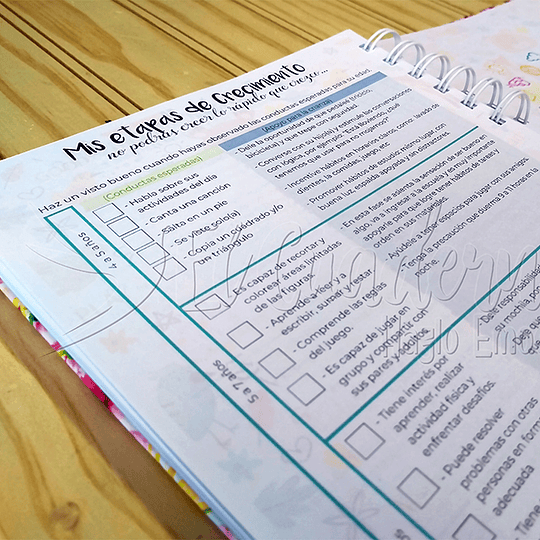 Mis etapas de Crecimiento
no podrás creer lo rápido que crezco...
Haz un visto bueno cuando hayas observado las conductas esperadas para su edad.
(Conductas esperadas)
(Apoyo para la crianza)
4 a 5 años
- Habla sobre sus
actividades del día
- Canta una canción
- Salta en un pie
- Se viste solo(a)
- Copia un cuadrado y/o
un triángulo
- Dele la oportunidad de que pedalee (triciclo,
bicicleta) y que trepe con seguridad.
- Converse con su hijo(a) y estimule las conversaciones
con lógica, por ejemplo, "Está lloviendo, ¿qué
tenemos que usar para no mojarnos?
- Incentive hábitos en horarios claros, como, lavado de
dientes, la comidas, juego, etc.
- Promover hábitos de estudio mismo lugar con
buena luz, útiles necesarios y un tiempo determinado.
5 a 7 años
- Es capaz de recortar y
colorear áreas limitadas
de las figuras
- Aprende a leer y a
escribir, sumar y restar.
- Comprende las reglas
del juego.
- Es capaz de jugar en
grupo y compartir con
sus pares y adultos.
- En esta fase se asienta la sensación de ser bueno en
algo, va a ingresar a la escuela y es muy importante
apoyarle para que logre tener hábitos de tareas y
orden en sus materiales.
- Ayúdele a tener espacios para jugar con los amigos.
- Tenga la precaución que duerma 9 a 11 horas en la
noche.
- Tiene interés por
aprender, realizar
actividad física y
enfrentar desafíos.
- Puede resolver
problemas con otras
personas en forma
adecuada
- Dele responsabilidades
su mochila,
Dele
que